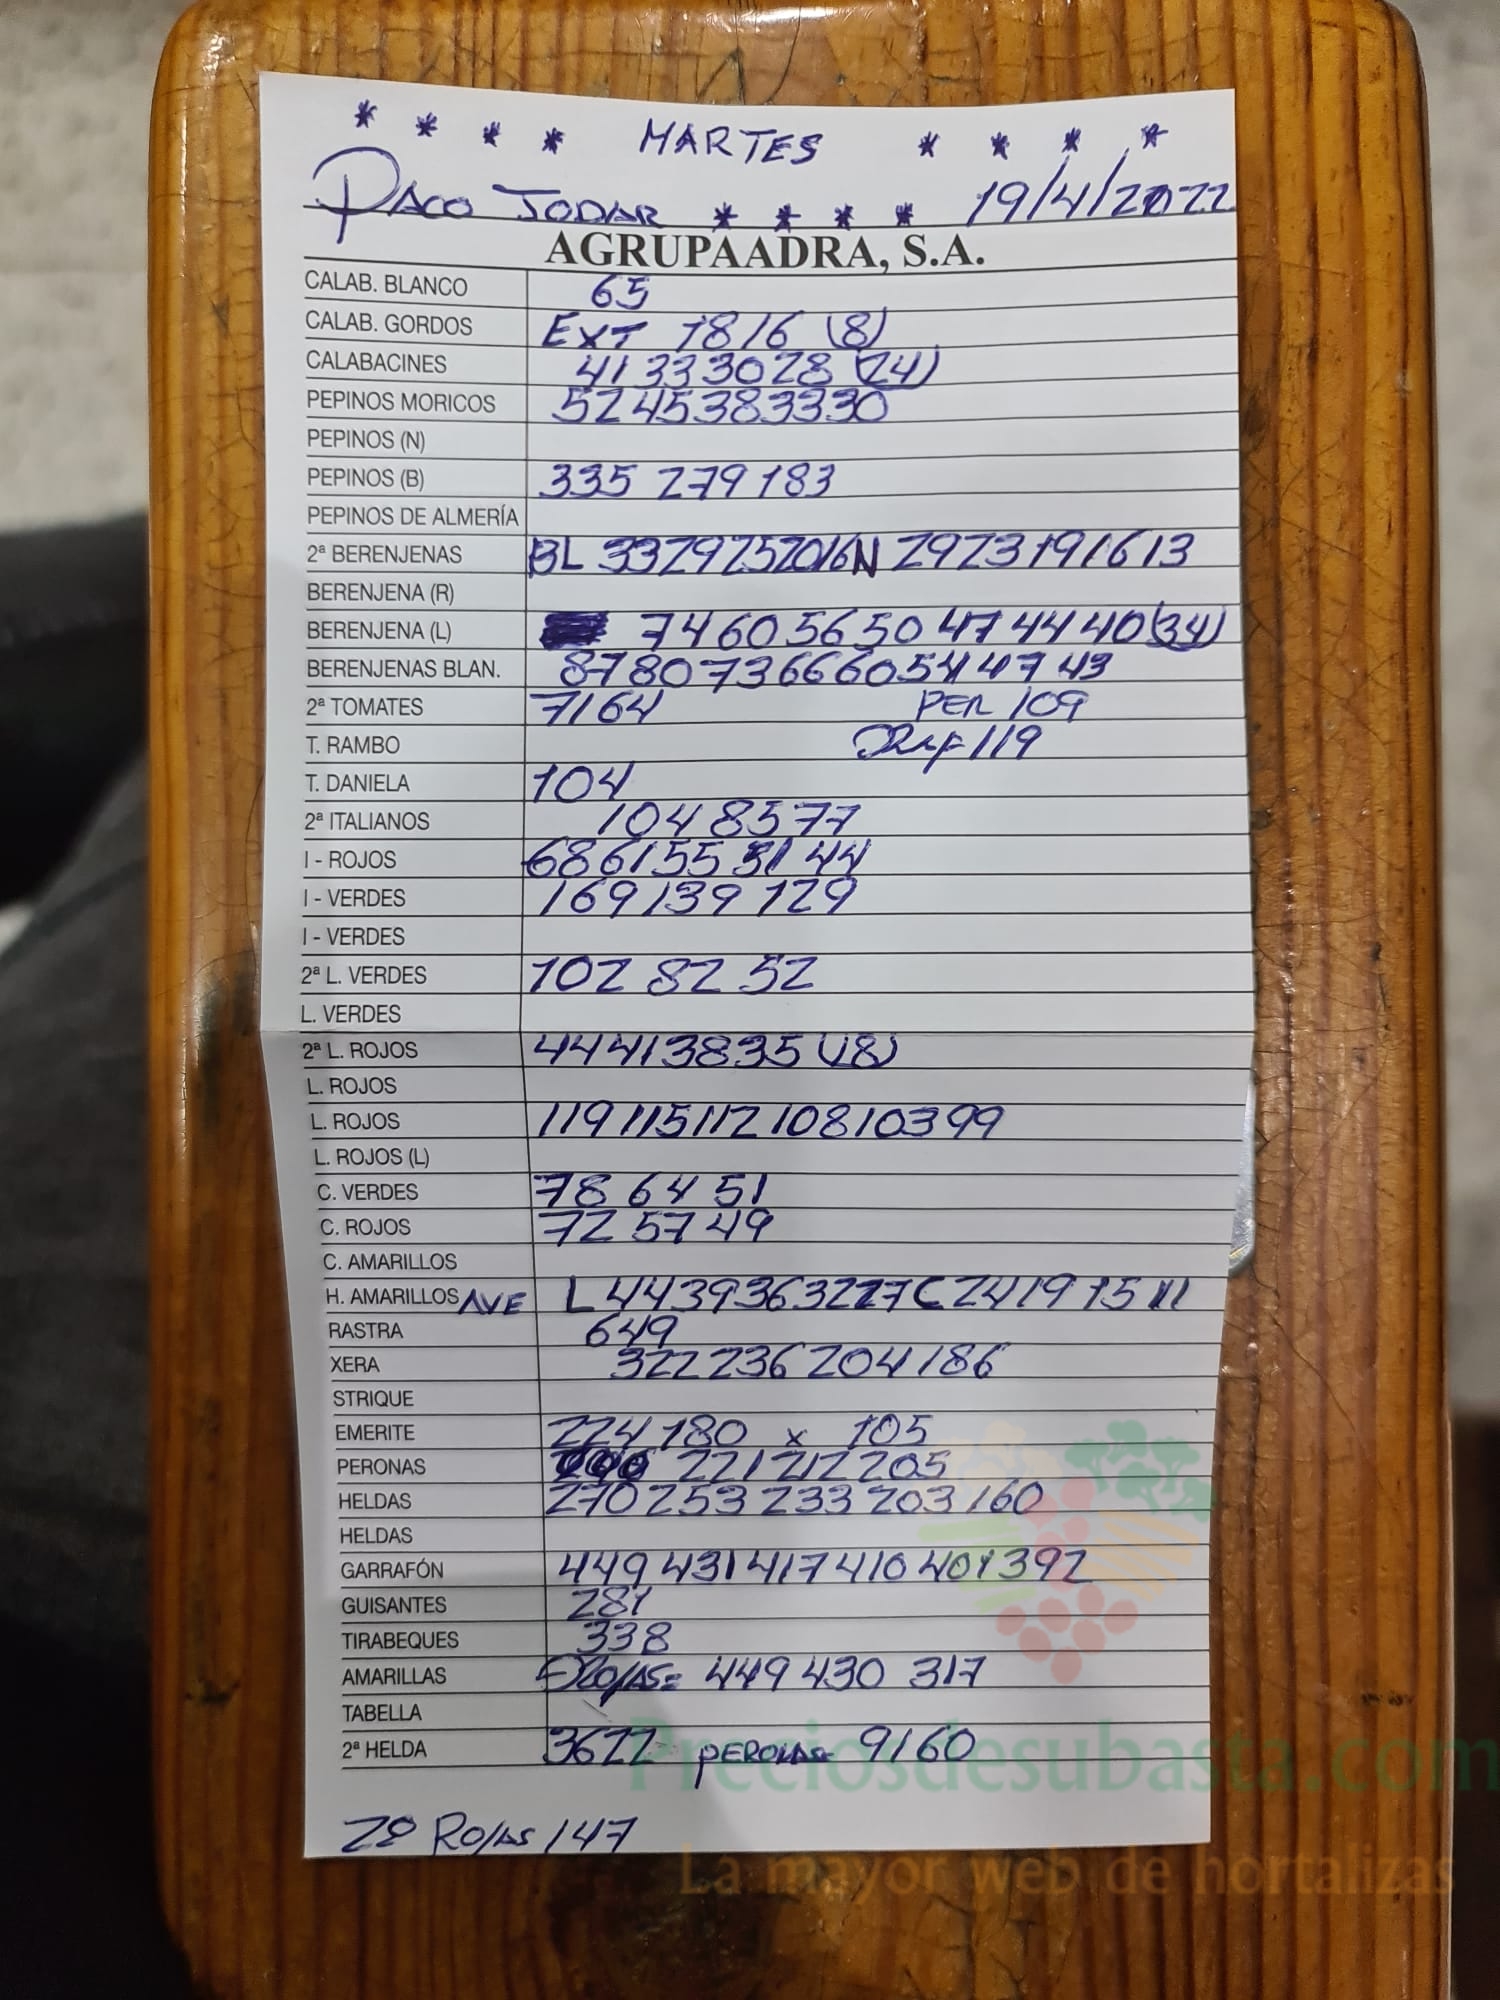 * * * * MARTES * * * *
PACO JODAR * * * * 19/4/2022
AGRUPAADRA, S.A.
CALAB. BLANCO 65
CALAB. GORDOS EXT 18 16 (8)
CALABACINES 41 33 30 28 (24)
PEPINOS MORICOS 52 45 38 33 30
PEPINOS (N)
PEPINOS (B) 335 279 183
PEPINOS DE ALMERÍA
2ª BERENJENAS BL 33 29 25 20 16 N 29 23 19 16 13
BERENJENA (R)
BERENJENA (L) 74 60 56 50 47 44 40 (34)
BERENJENAS BLAN. 87 80 73 66 60 54 47 43
2ª TOMATES 71 64 PER 109
T. RAMBO 119
T. DANIELA 104
2ª ITALIANOS 104 85 77
I - ROJOS 68 61 55 51 44
I - VERDES 169 139 129
I - VERDES
2ª L. VERDES 102 82 52
L. VERDES
2ª L. ROJOS 44 41 38 35 (18)
L. ROJOS
L. ROJOS 119 115 112 108 103 99
L. ROJOS (L)
C. VERDES 78 64 51
C. ROJOS 72 57 49
C. AMARILLOS
H. AMARILLOS AVE L 44 39 36 32 27 C 24 19 15 11
RASTRA 649
XERA 322 236 204 186
STRIQUE
EMERITE 224 180 x 105
PERONAS 221 212 205
HELDAS 270 253 233 203 160
HELDAS
GARRAFÓN 449 431 417 410 401 392
GUISANTES 281
TIRABEQUES 338
AMARILLAS ROJAS= 449 430 317
TABELLA
2ª HELDA 36 22 PERONAS= 91 60
Preciosdesubasta.com
2ª ROJAS 147
La mayor web de hortalizas